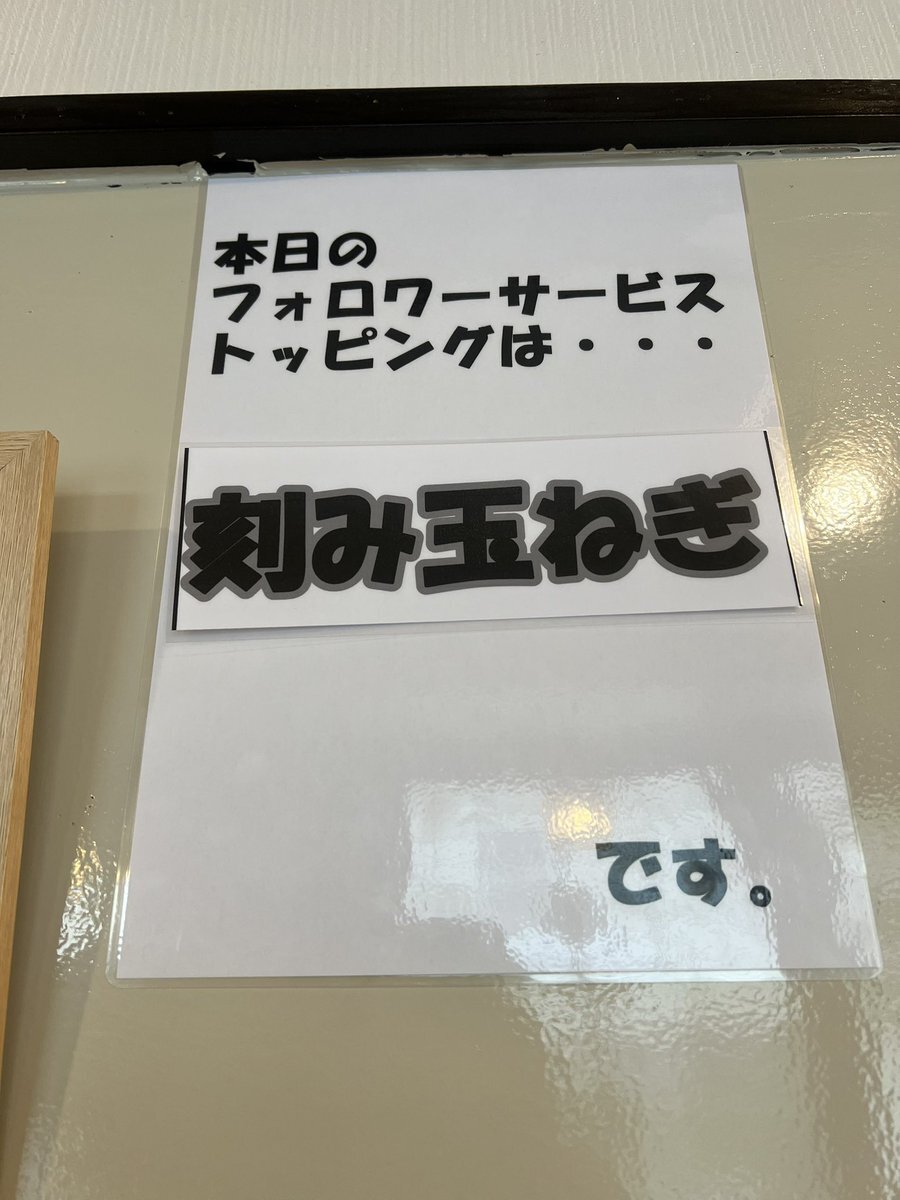 本日の
フォロワーサービス
トッピングは・・・
刻み玉ねぎ
です。